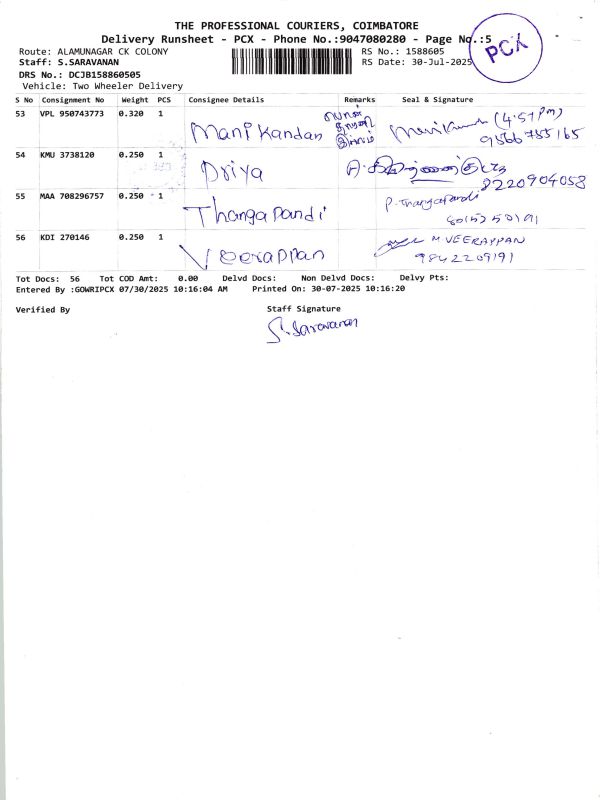 THE PROFESSIONAL COURIERS, COIMBATORE
Delivery Runsheet - PCX - Phone No.:9047080280 - Page No.:5
PCX
Route: ALAMUNAGAR CK COLONY
RS No.: 1588605
Staff: S.SARAVANAN
RS Date: 30-Jul-2025
DRS No.: DCJB158860505
Vehicle: Two Wheeler Delivery
S No Consignment No Weight PCS Consignee Details Remarks Seal & Signature
53 VPL 950743773 0.320 1 Manikandan Manikandan (4.57 pm)
9566 755 165
54 KMU 3738120 0.250 1 Priya
8220904058
55 MAA 708296757 0.250 1 Thangapandi P. Thangapandi
56 KDI 270146 0.250 1 Veerappan M VEERAPPAN
9842209191
Tot Docs: 56 Tot COD Amt: 0.00 Delvd Docs: Non Delvd Docs: Delvy Pts:
Entered By :GOWRIPCX 07/30/2025 10:16:04 AM Printed On: 30-07-2025 10:16:20
Verified By Staff Signature
S. Saravanan